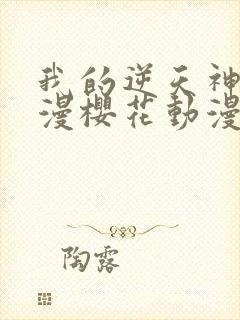 我的逆天神
漫櫻花動漫
陶露